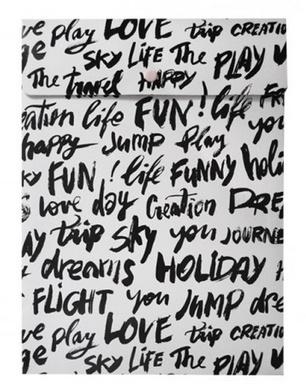 ve play LOVE trip CREATIO
ge SKY LIFE The PLAY
The travel HAPPY
eation life FUN! life FR
happy JUMP Play you
KY FUN! life FUNNY holi
S Love day Creation DRE
AY trip SKY you JOURNE
dreams HOLIDAY
FLIGHT you JUMP dre
ve play LOVE trip CREATI
ge SKY LIFE The PLAY